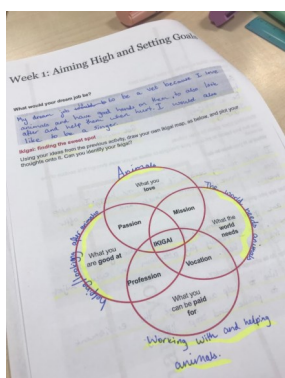 Week 1: Aiming High and Setting Goals
What would your dream job be?
My dream job to be a vet because I love
animals and have good hands on them, to also look
after and help them when hurt. I would also
like to be a singer.
Ikigai: finding the sweet spot
Using your ideas from the previous activity, draw your own Ikigai map, as below, and plot your
thoughts onto it. Can you identify your Ikigai?
Animals
What you
love
The world needs animals
Passion
Mission
helping/looking after animals
What you
are good at
IKIGAI
What the
world
needs
Profession
Vocation
What you
can be paid
for
Working with and helping
animals.